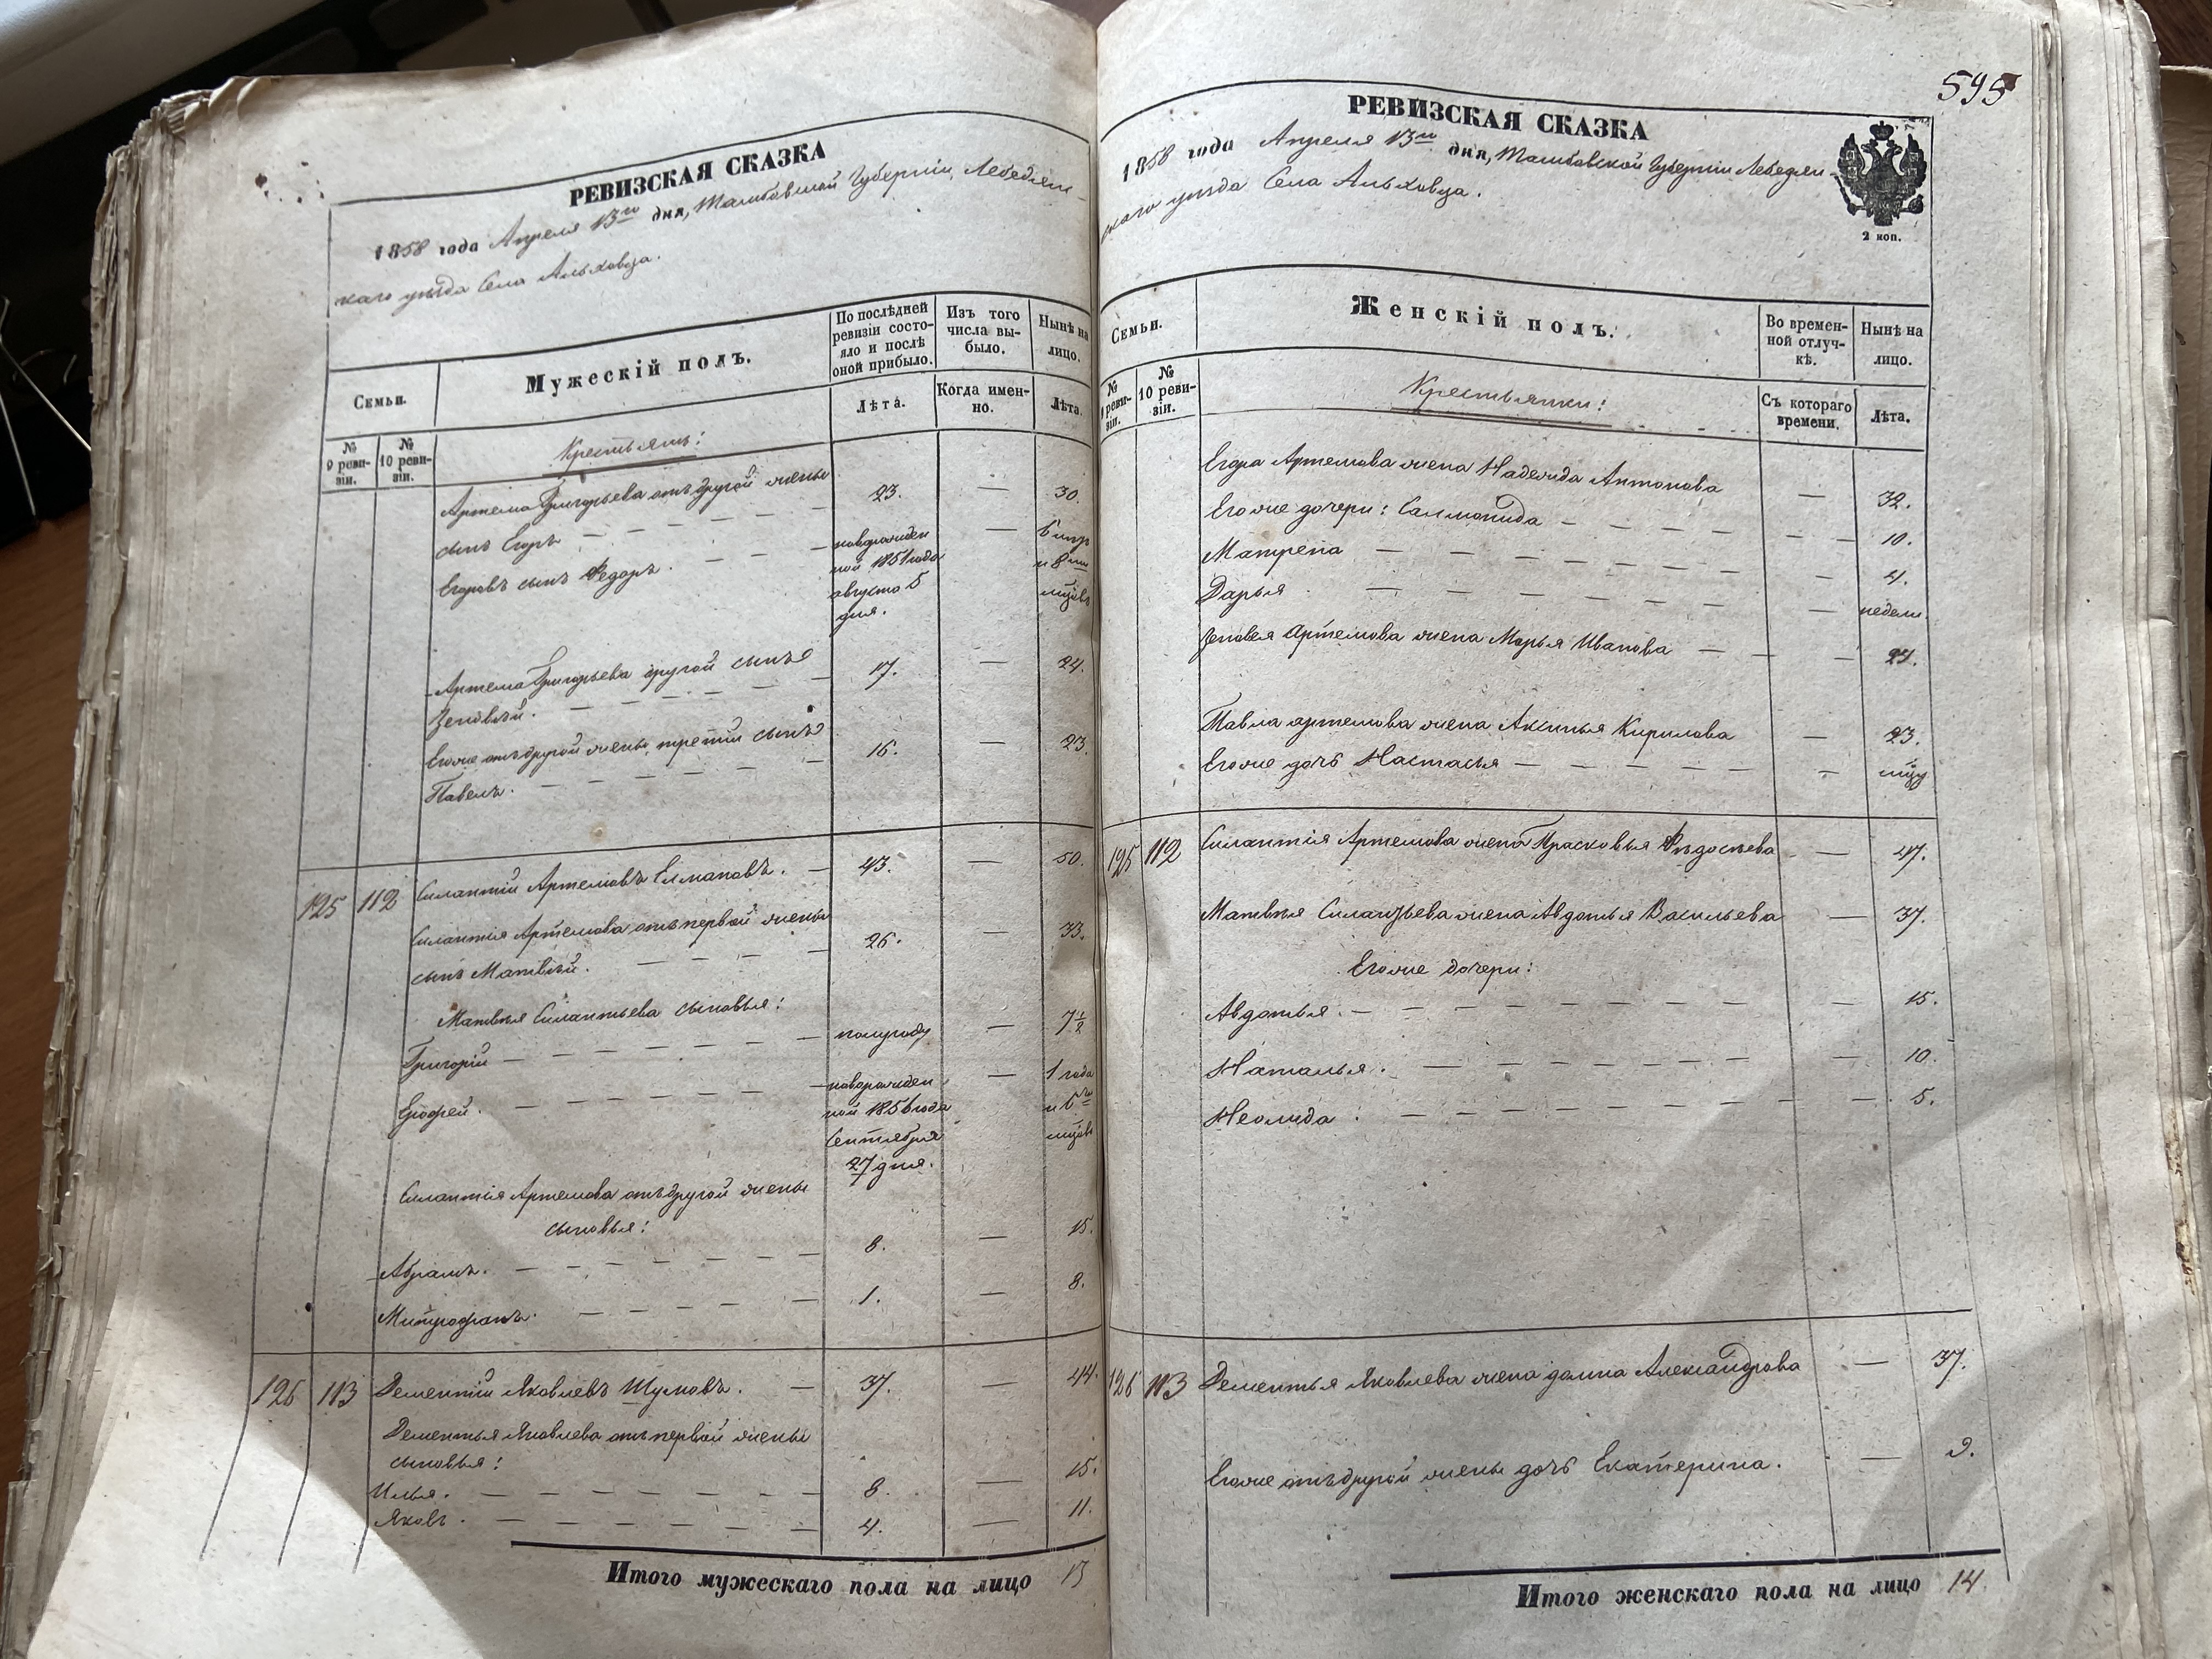 РЕВИЗСКАЯ СКАЗКА
1858 года Апреля 13го дня, Тамбовской Губерніи Лебедян-
скаго уѣзда Села Альховца.
Семьи.
Мужескій полъ.
По послѣдней ревизіи состо-яло и послѣ оной прибыло.
Изъ того числа вы-было.
Нынѣ на лицо.
№ 9 реви-зіи.
№ 10 реви-зіи.
Лѣта.
Когда имен-но.
Лѣта.
Крестьянъ:
Артема Григорьева отъ другой жены
сынъ Егоръ 23. — 30.
Егоровъ сынъ Федоръ. новорожден
ной 1851 года — 6 и 8 мцовъ
августа 5
дня.
Артема Григорьева другой сынъ
Зеновѣй. 17. — 24.
Егоже отъ другой жены третій сынъ
Павелъ. 16. — 23.
125 112 Силантій Артемовъ Елмановъ. 43. — 50.
Силантія Артемова отъ первой жены
сынъ Матвѣй. 26. — 33.
Матвѣя Силантьева сыновья:
Григорій полугоду — 7½
Ерофей. новорожден
ной 1856 года — 1 года и 6 мцовъ
Сентября
27 дня.
Силантія Артемова отъ другой жены
сыновья:
Абрамъ. 8. — 15.
Митрофанъ. 1. — 8.
126 113 Дементій Яковлевъ Шумовъ. 37. — 44.
Дементья Яковлева отъ первой жены
сыновья:
Илья. 8. — 15.
Яковъ. 4. — 11.
Итого мужескаго пола на лицо 13
595
РЕВИЗСКАЯ СКАЗКА
1858 года Апреля 13го дня, Тамбовской Губерніи Лебедян-
скаго уѣзда Села Альховца.
2 коп.
Семьи.
Женскій полъ.
Во времен-ной отлуч-кѣ.
Нынѣ на лицо.
№ 9 реви-зіи.
№ 10 реви-зіи.
Съ котораго времени.
Лѣта.
Крестьянки:
Егора Артемова жена Надежда Антонова — 32.
Егоже дочери: Саломонида — 10.
Матрена — 4.
Дарья — недели
Зеновея Артемова жена Марья Иванова — 24.
Павла артемова жена Аксинья Кирилова — 23.
Егоже дочь Настасья — мцу
125 112 Силантія Артемова жена Прасковья Ѳедосѣева — 47.
Матвѣя Силантьева жена Авдотья Васильева — 37.
Егоже дочери:
Авдотья. — 15.
Наталья. — 10.
Неолида. — 5.
126 113 Дементья Яковлева жена домна Александрова — 37.
Егоже отъ другой жены дочь Екатерина. — 9.
Итого женскаго пола на лицо 14.